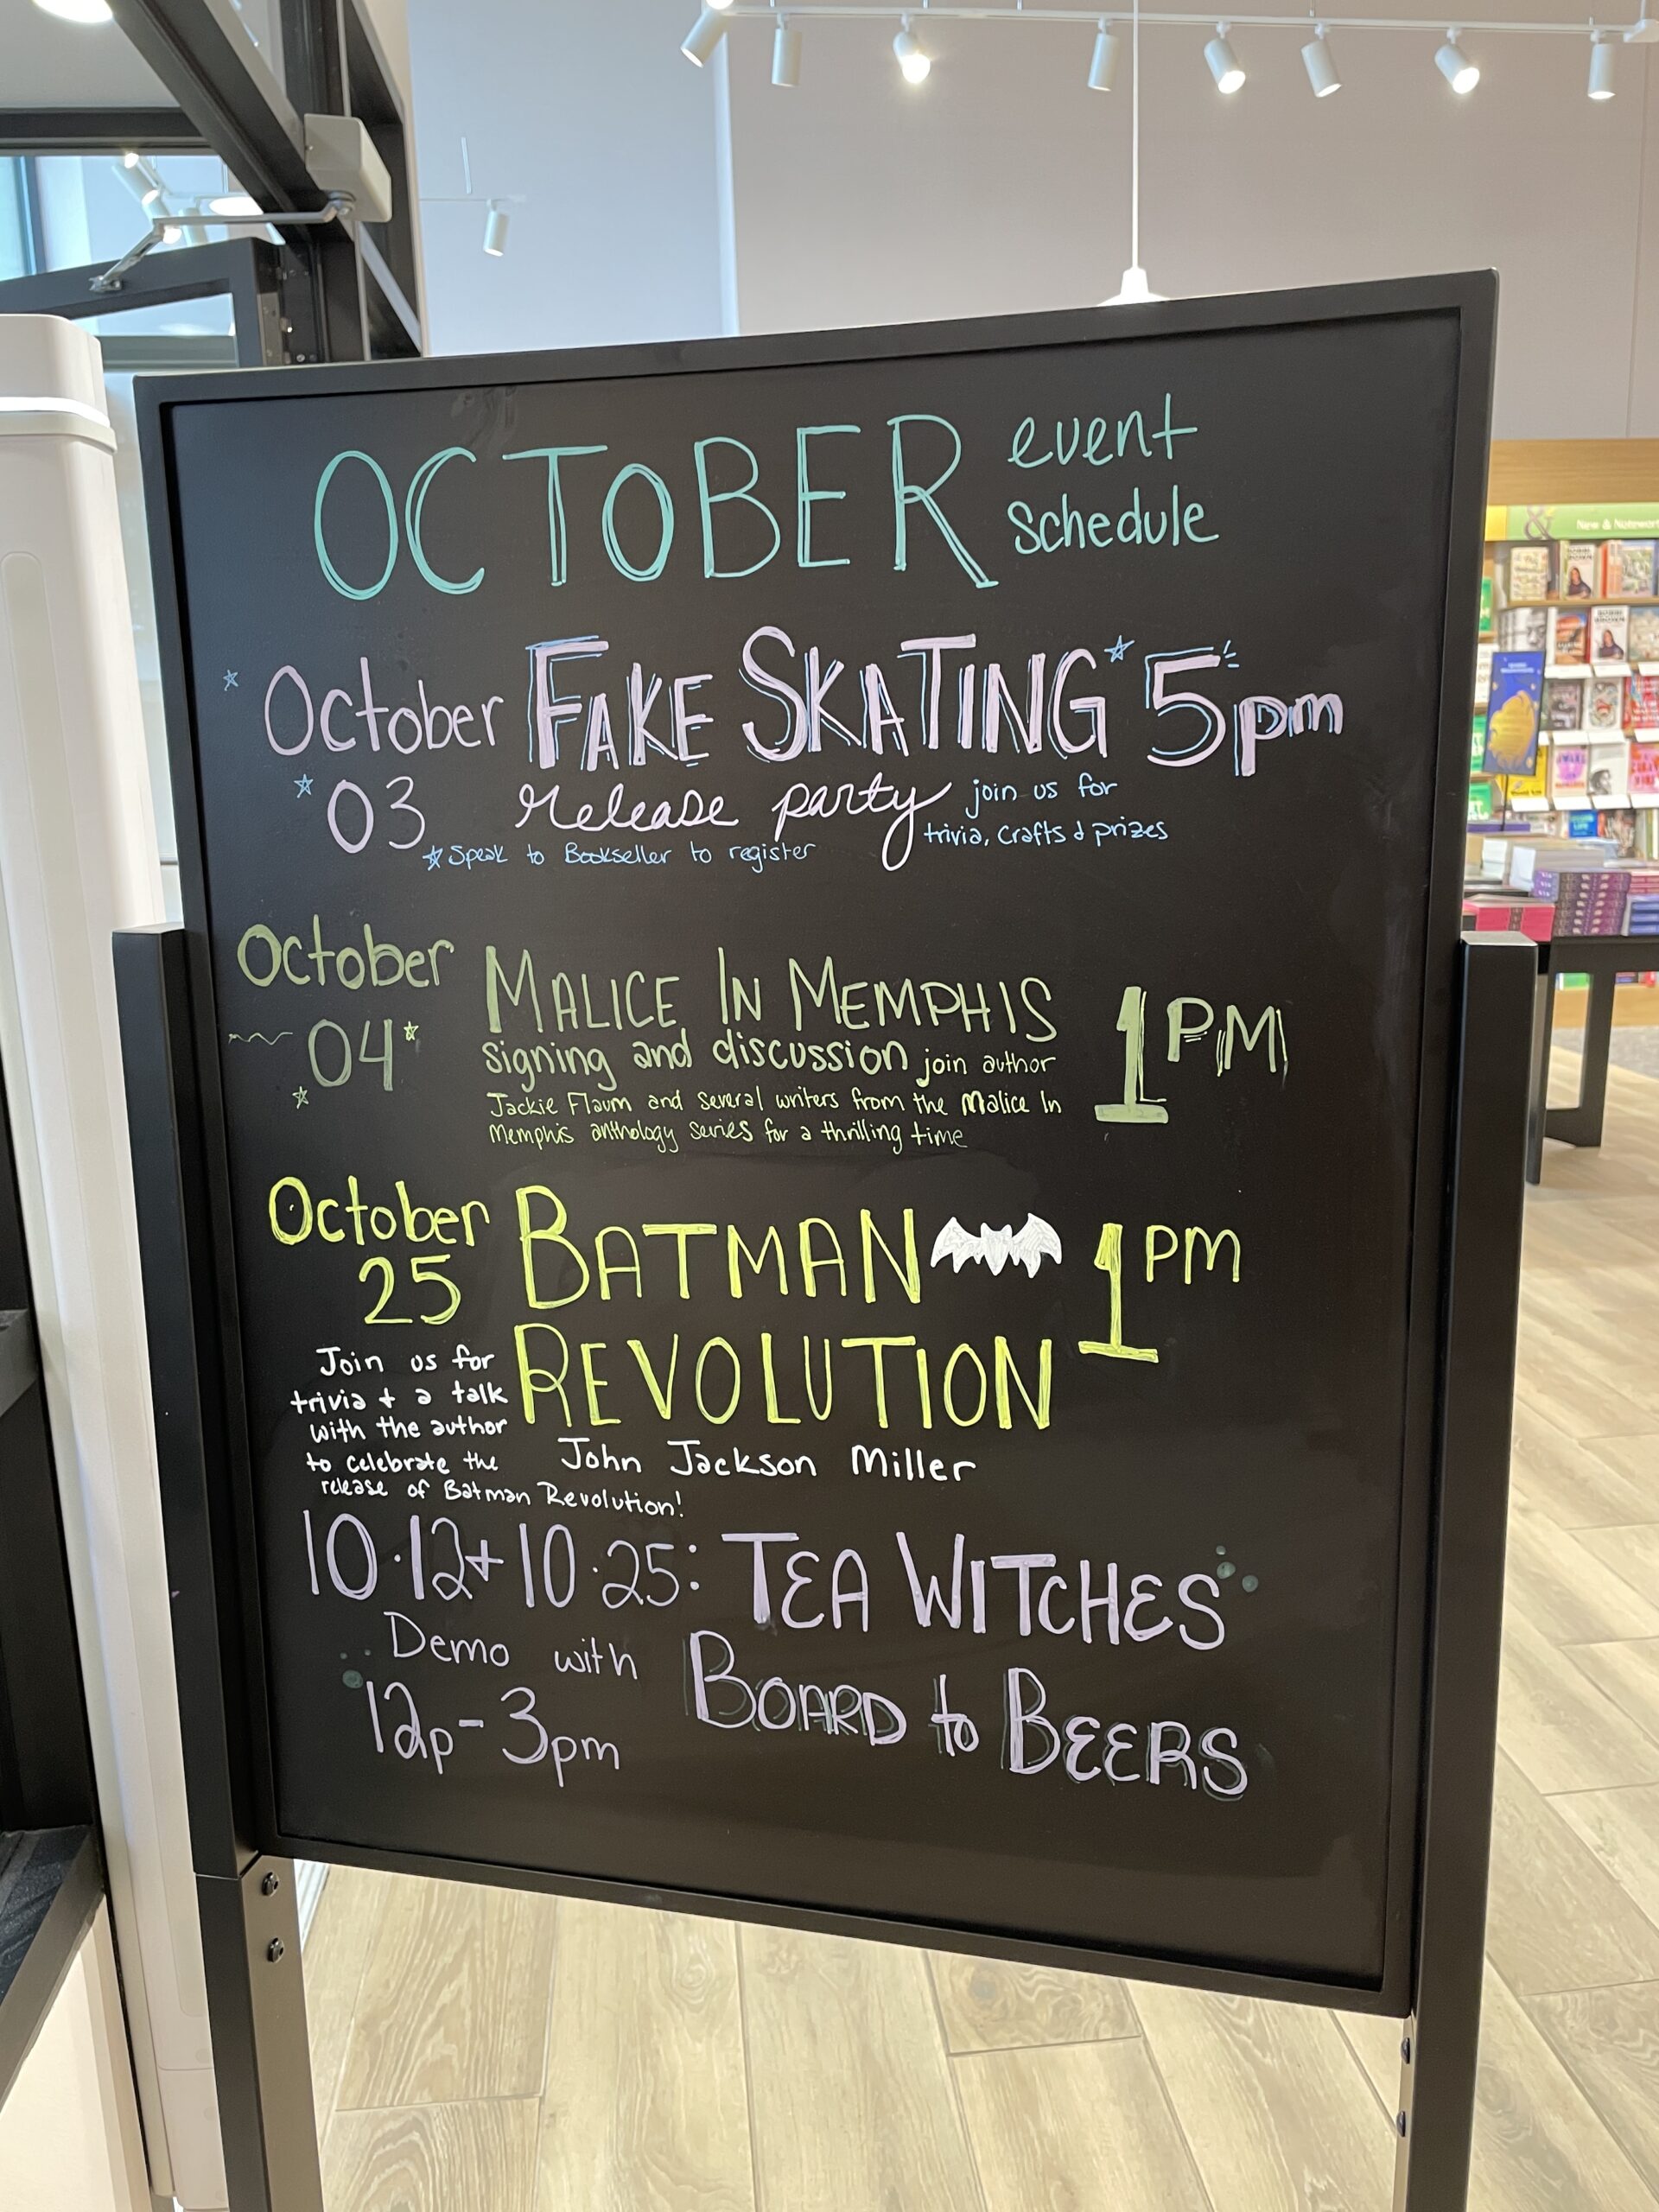 OCTOBER event
schedule
October FAKE SKATING 5pm
03 release party join us for
trivia, crafts & prizes
Speak to Bookseller to register
October
04
MALICE IN MEMPHIS
signing and discussion join author
Jackie Flaum and several writers from the Malice In
Memphis anthology series for a thrilling time
1PM
October
25
BATMAN
REVOLUTION
1PM
Join us for
trivia + a talk
with the author
to celebrate the
release of Batman Revolution!
John Jackson Miller
10.12+10.25: TEA WITCHES
Demo with BOARD to BEERS
12p-3pm
New & Notewort